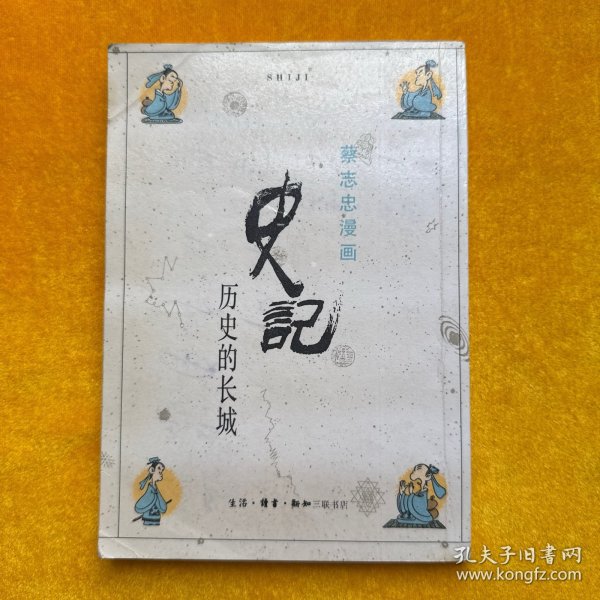 SHIJI
蔡志忠漫画
史記
历史的长城
生活·讀書·新知三联书店
孔夫子旧書网
www.kongfz.com